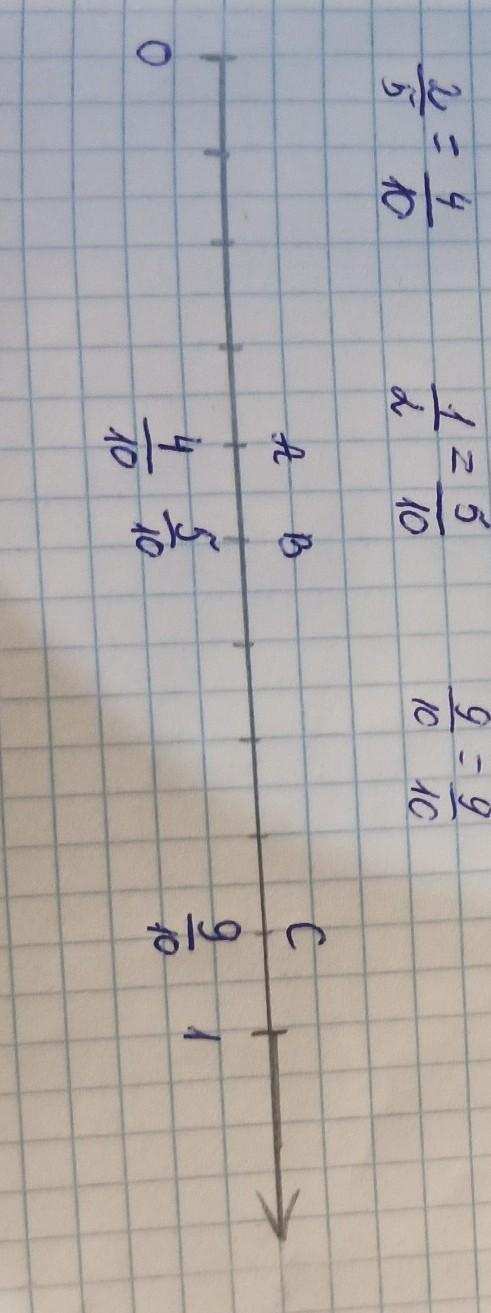 2/5 = 4/10 1/2 = 5/10 9/10 = 9/10
A B C
0 4/10 5/10 9/10 1